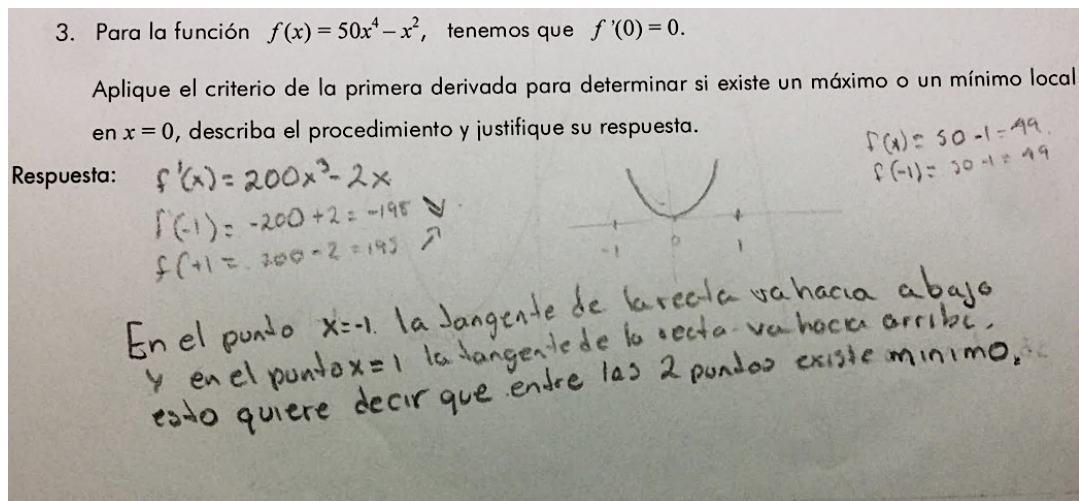 3. Para la función f(x) = 50x⁴ – x², tenemos que f '(0) = 0.
Aplique el criterio de la primera derivada para determinar si existe un máximo o un mínimo local
en x = 0, describa el procedimiento y justifique su respuesta.
f(1) = 50 - 1 = 49.
f(-1) = 50 - 1 = 49
Respuesta: f'(x) = 200x³ - 2x
f'(-1) = -200 + 2 = -198 ↘
f'(+1 = 200 - 2 = 198 ↗
-1 0 1
En el punto x=-1. la tangente de la recta va hacia abajo
y en el punto x=1 la tangente de la recta va hacia arriba.
esto quiere decir que entre las 2 puntos existe minimo.